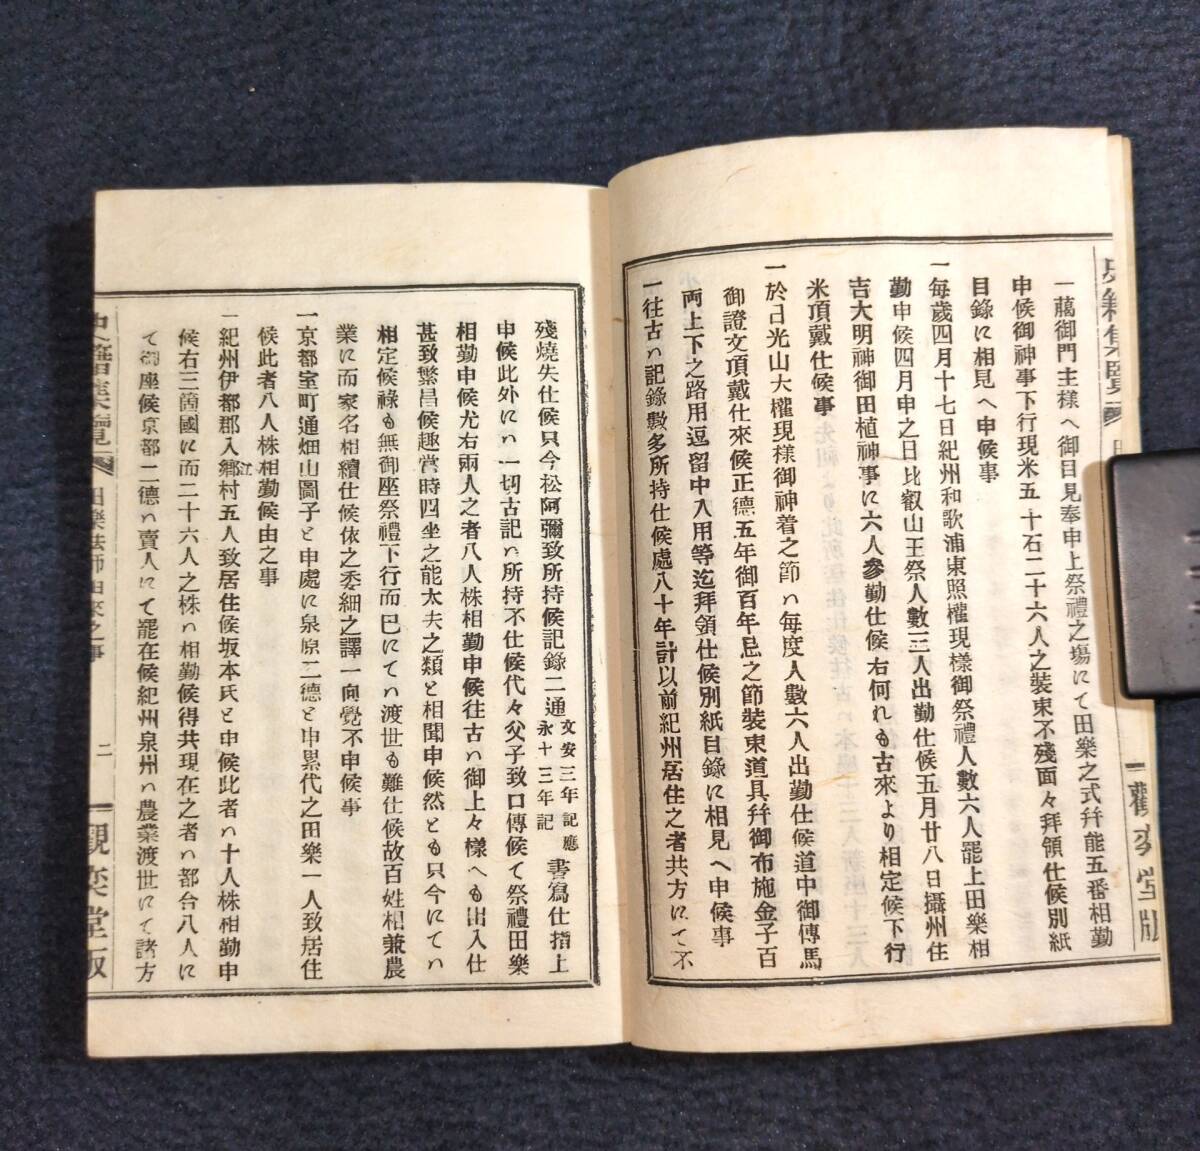 一﨟御門主様へ御目見奉申上祭禮之塲にて田樂之式幷能五番相勤
申候御神事下行現米五十石二十六人之裝束不殘面々拜領仕候別紙
目錄に相見へ申候事
一每歲四月十七日紀州和歌浦東照權現樣御祭禮人數六人罷上田樂相
勤申候四月申之日比叡山王祭人數三人出勤仕候五月廿八日攝州住
吉大明神御田植神事に六人參勤仕候右何れも古來より相定候下行
米頂戴仕候事
一於日光山大權現樣御神着之節ハ每度人數六人出勤仕候道中御傳馬
御證文頂戴仕來候正德五年御百年忌之節裝束道具幷御布施金子百
両上下之路用逗留中入用等迄拜領仕候別紙目錄に相見へ申候事
一往古ハ記錄數多所持仕候處八十年計以前紀州居住之者共方にて不
觀奕堂版
殘燒失仕候只今松阿彌致所持候記錄二通文安三年記應永十三年記書寫仕指上
申候此外にハ一切古記ハ所持不仕候代々父子致口傳候て祭禮田樂
相勤申候尤右兩人之者八人株相勤申候往古ハ御上々樣へも出入仕
甚致繁昌候趣當時四坐之能太夫之類と相聞申候然とも只今にてハ
相定候祿も無御座祭禮下行而巳にてハ渡世も難仕候故百姓相兼農
業に而家名相續仕候依之委細之譯一向覺不申候事
一京都室町通畑山圖子と申處に泉原二德と申累代之田樂一人致居住
候此者八人株相勤候由之事
一紀州伊都郡入鄕村五人致居住候坂本氏と申候此者ハ十人株相勤申
候右三箇國に而二十六人之株ハ相勤候得共現在之者ハ都合八人に
て御座候京都二德ハ賣人にて罷在候紀州泉州ハ農業渡世にて諸方
史籍集覽
田樂法師由來之事
二
觀奕堂版